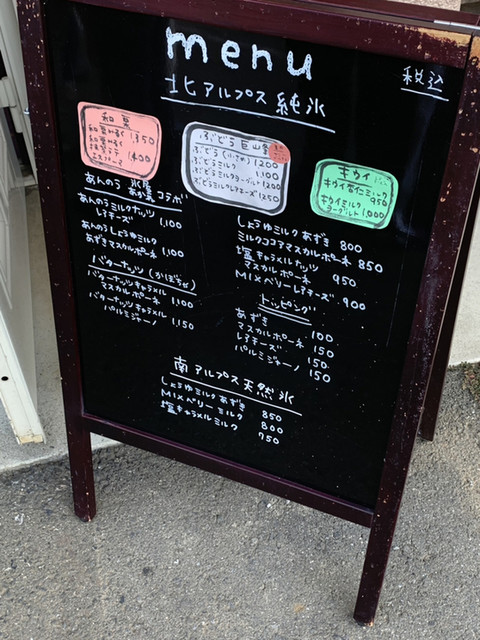 menu
税込
北アルプス純氷
和栗
和栗みるく 1,350
1,400
ぶどう 巨峰
ぶどう 1200
ぶどうミルク 1,100
ぶどうミルクヨーグルト 1200
ぶどうミルクレアチーズ 1250
キウイ
キウイ杏仁ミルク
950
キウイミルク
ヨーグルト 1,000
あんのう 氷屋あか森 コラボ
あんのうミルクナッツ
レアチーズ 1,100
あんのうしょうゆミルク
あずきマスカルポーネ 1,100
バターナッツ (かぼちゃ)
バターナッツキャラメル
マスカルポーネ 1,100
バターナッツキャラメル
パルミジャーノ 1,150
しょうゆミルクあずき 800
ミルクココアマスカルポーネ 850
塩キャラメルナッツ
マスカルポーネ 950
MIXベリーレアチーズ 900
トッピング
あずき 100
マスカルポーネ 150
レアチーズ 150
パルミジャーノ 150
南アルプス天然氷
しょうゆミルクあずき 850
MIXベリーミルク 800
塩キャラメルミルク 750